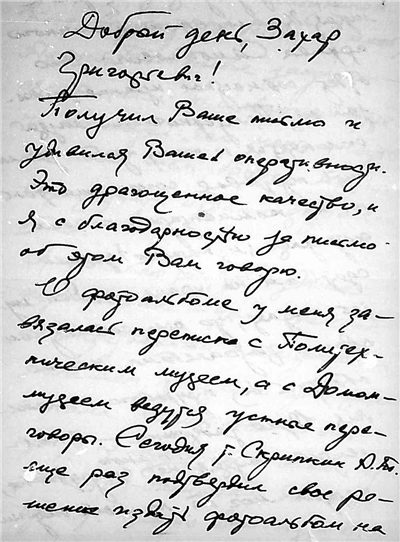 Добрый день, Захар
Григорьевич!
Получил Ваше письмо и
удивился Вашей оперативности.
Это драгоценное качество, и
я с благодарностью за письмо
об этом Вам говорю.
О фотоальбоме у меня за-
вязалась переписка с Политех-
ническим музеем, а с Домом-
музеем ведутся устные пере-
говоры. Сегодня т. Скрипкин
еще раз подтвердил свое ре-
шение издать фотоальбом на